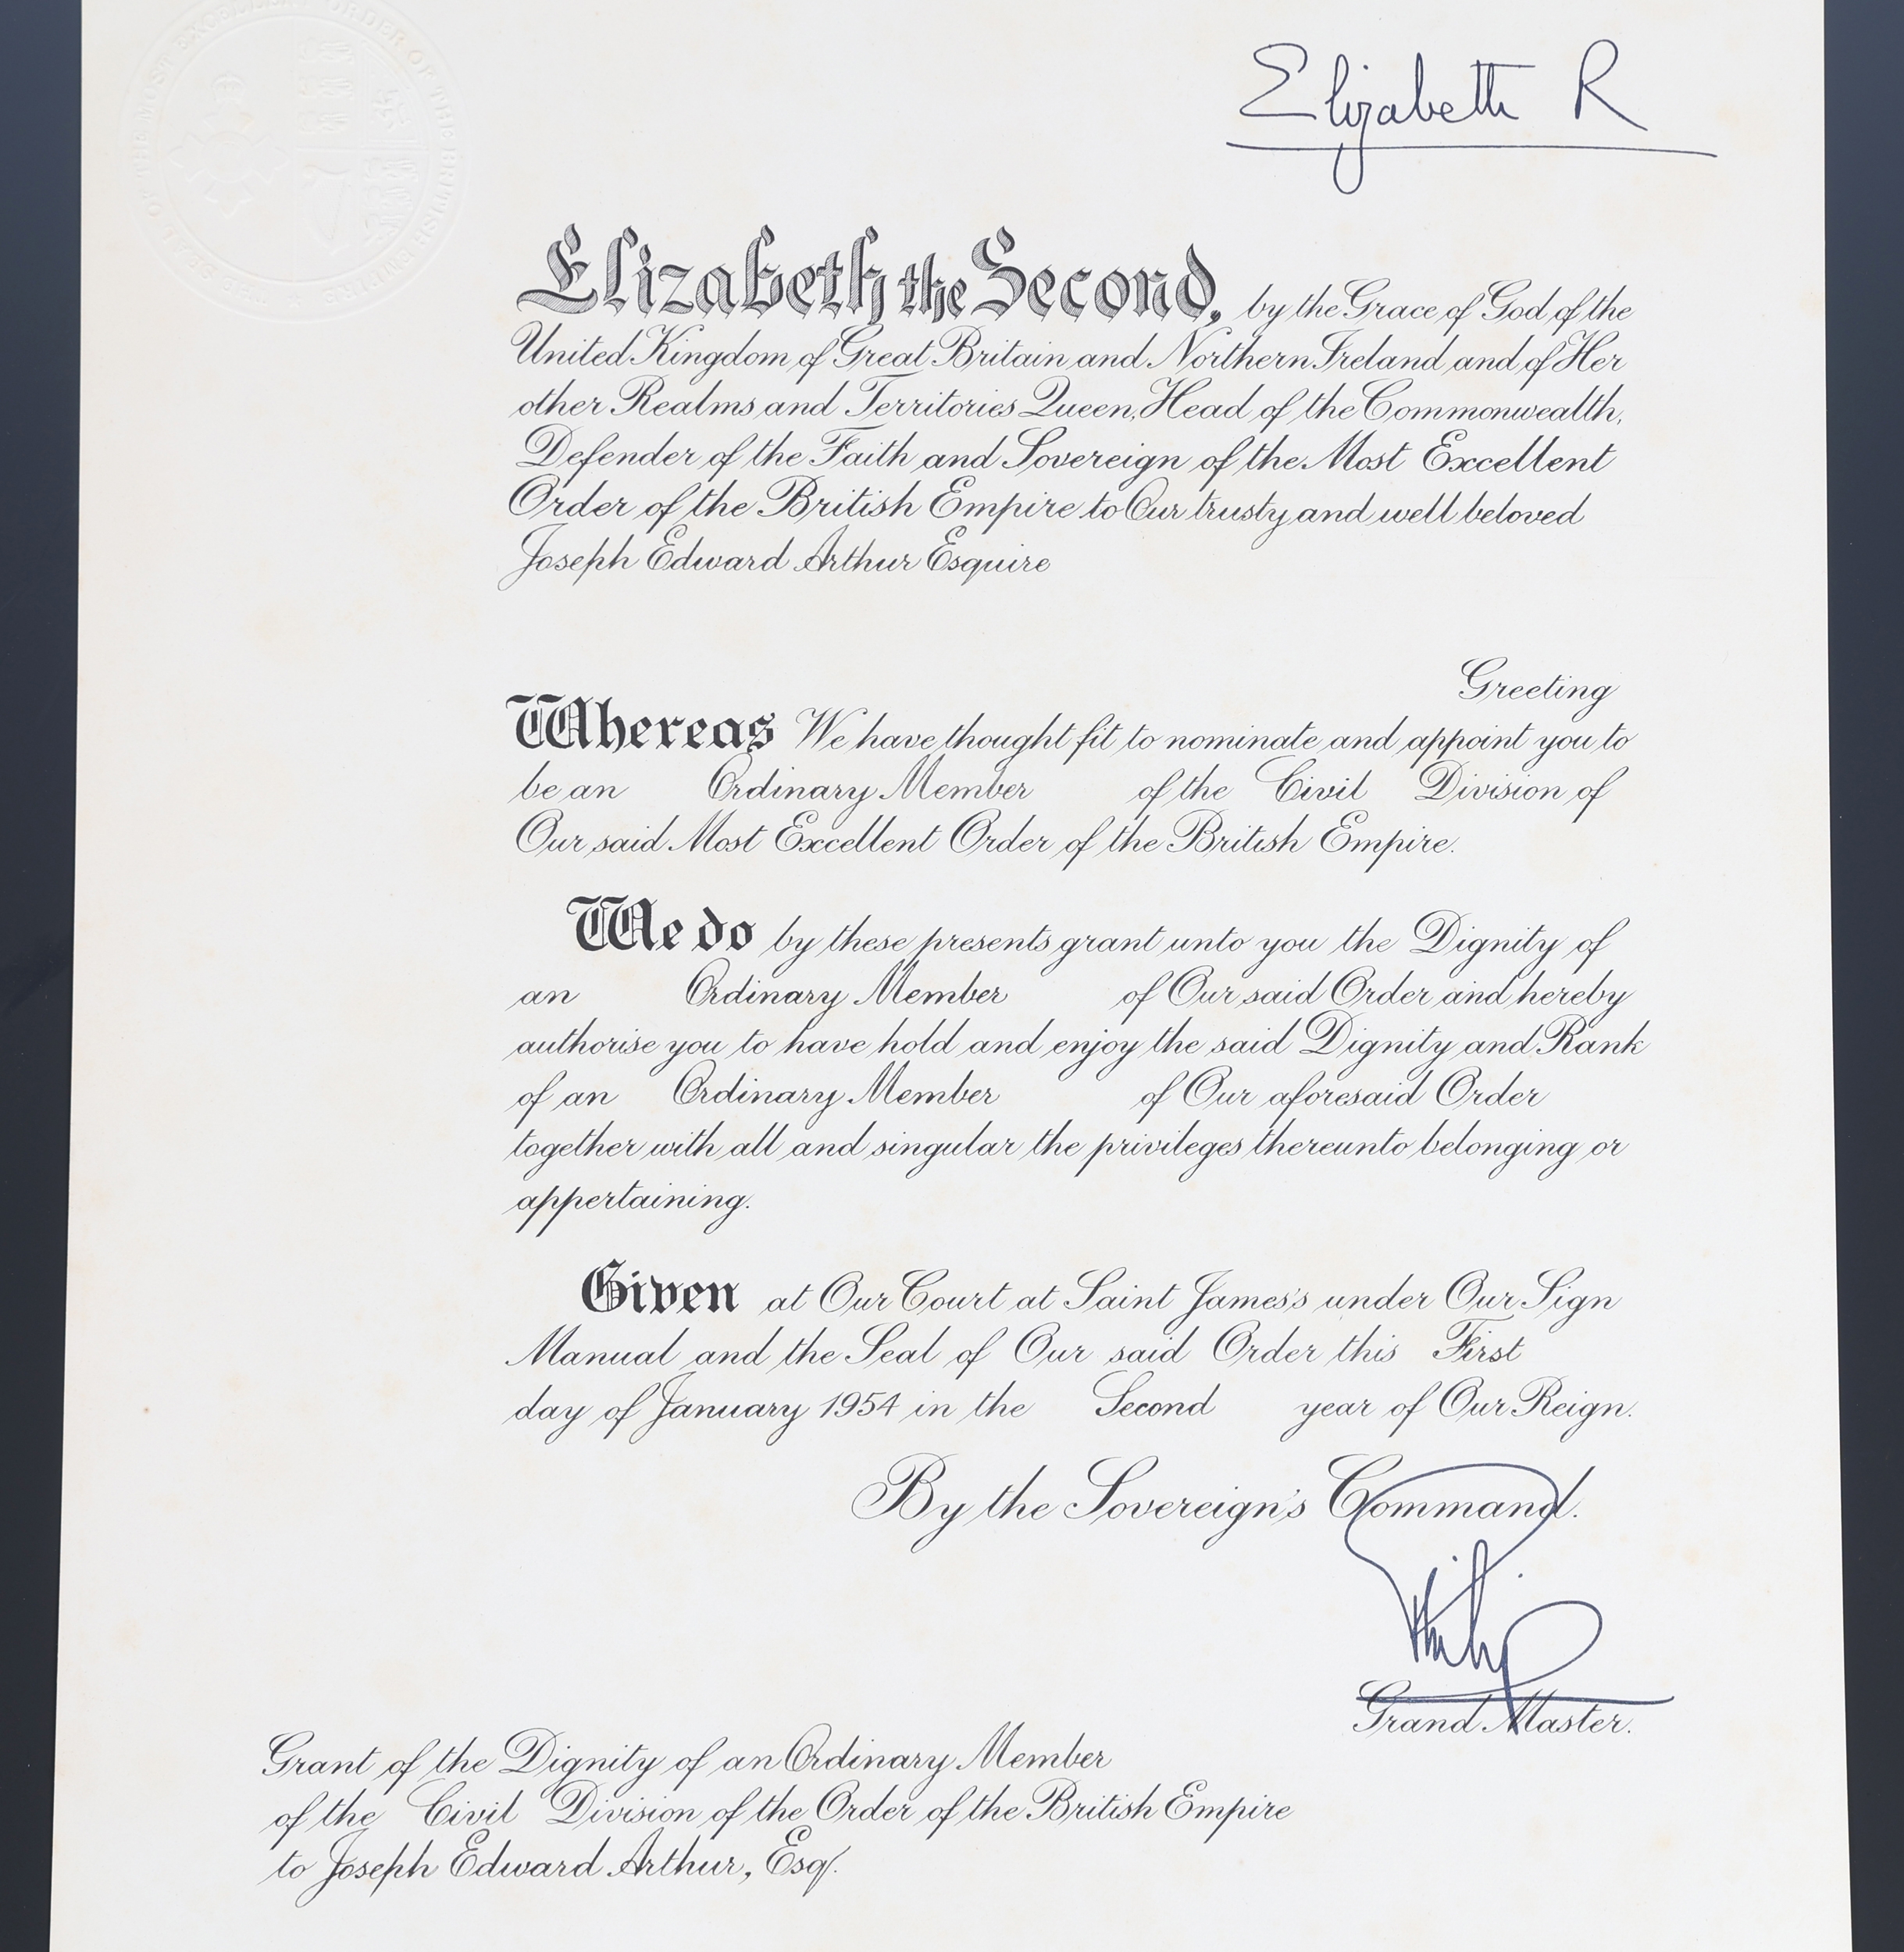 THE SEAL OF THE MOST EXCELLENT ORDER OF THE BRITISH EMPIRE
Elizabeth R
Elizabeth the Second, by the Grace of God of the
United Kingdom of Great Britain and Northern Ireland and of Her
other Realms and Territories Queen, Head of the Commonwealth,
Defender of the Faith and Sovereign of the Most Excellent
Order of the British Empire to Our trusty and well beloved
Joseph Edward Arthur Esquire
Greeting
Whereas We have thought fit to nominate and appoint you to
be an Ordinary Member of the Civil Division of
Our said Most Excellent Order of the British Empire.
We do by these presents grant unto you the Dignity of
an Ordinary Member of Our said Order and hereby
authorise you to have hold and enjoy the said Dignity and Rank
of an Ordinary Member of Our aforesaid Order
together with all and singular the privileges thereunto belonging or
appertaining.
Given at Our Court at Saint James's under Our Sign
Manual and the Seal of Our said Order this First
day of January 1954 in the Second year of Our Reign.
By the Sovereign's Command.
Philip
Grand Master.
Grant of the Dignity of an Ordinary Member
of the Civil Division of the Order of the British Empire
to Joseph Edward Arthur, Esq.